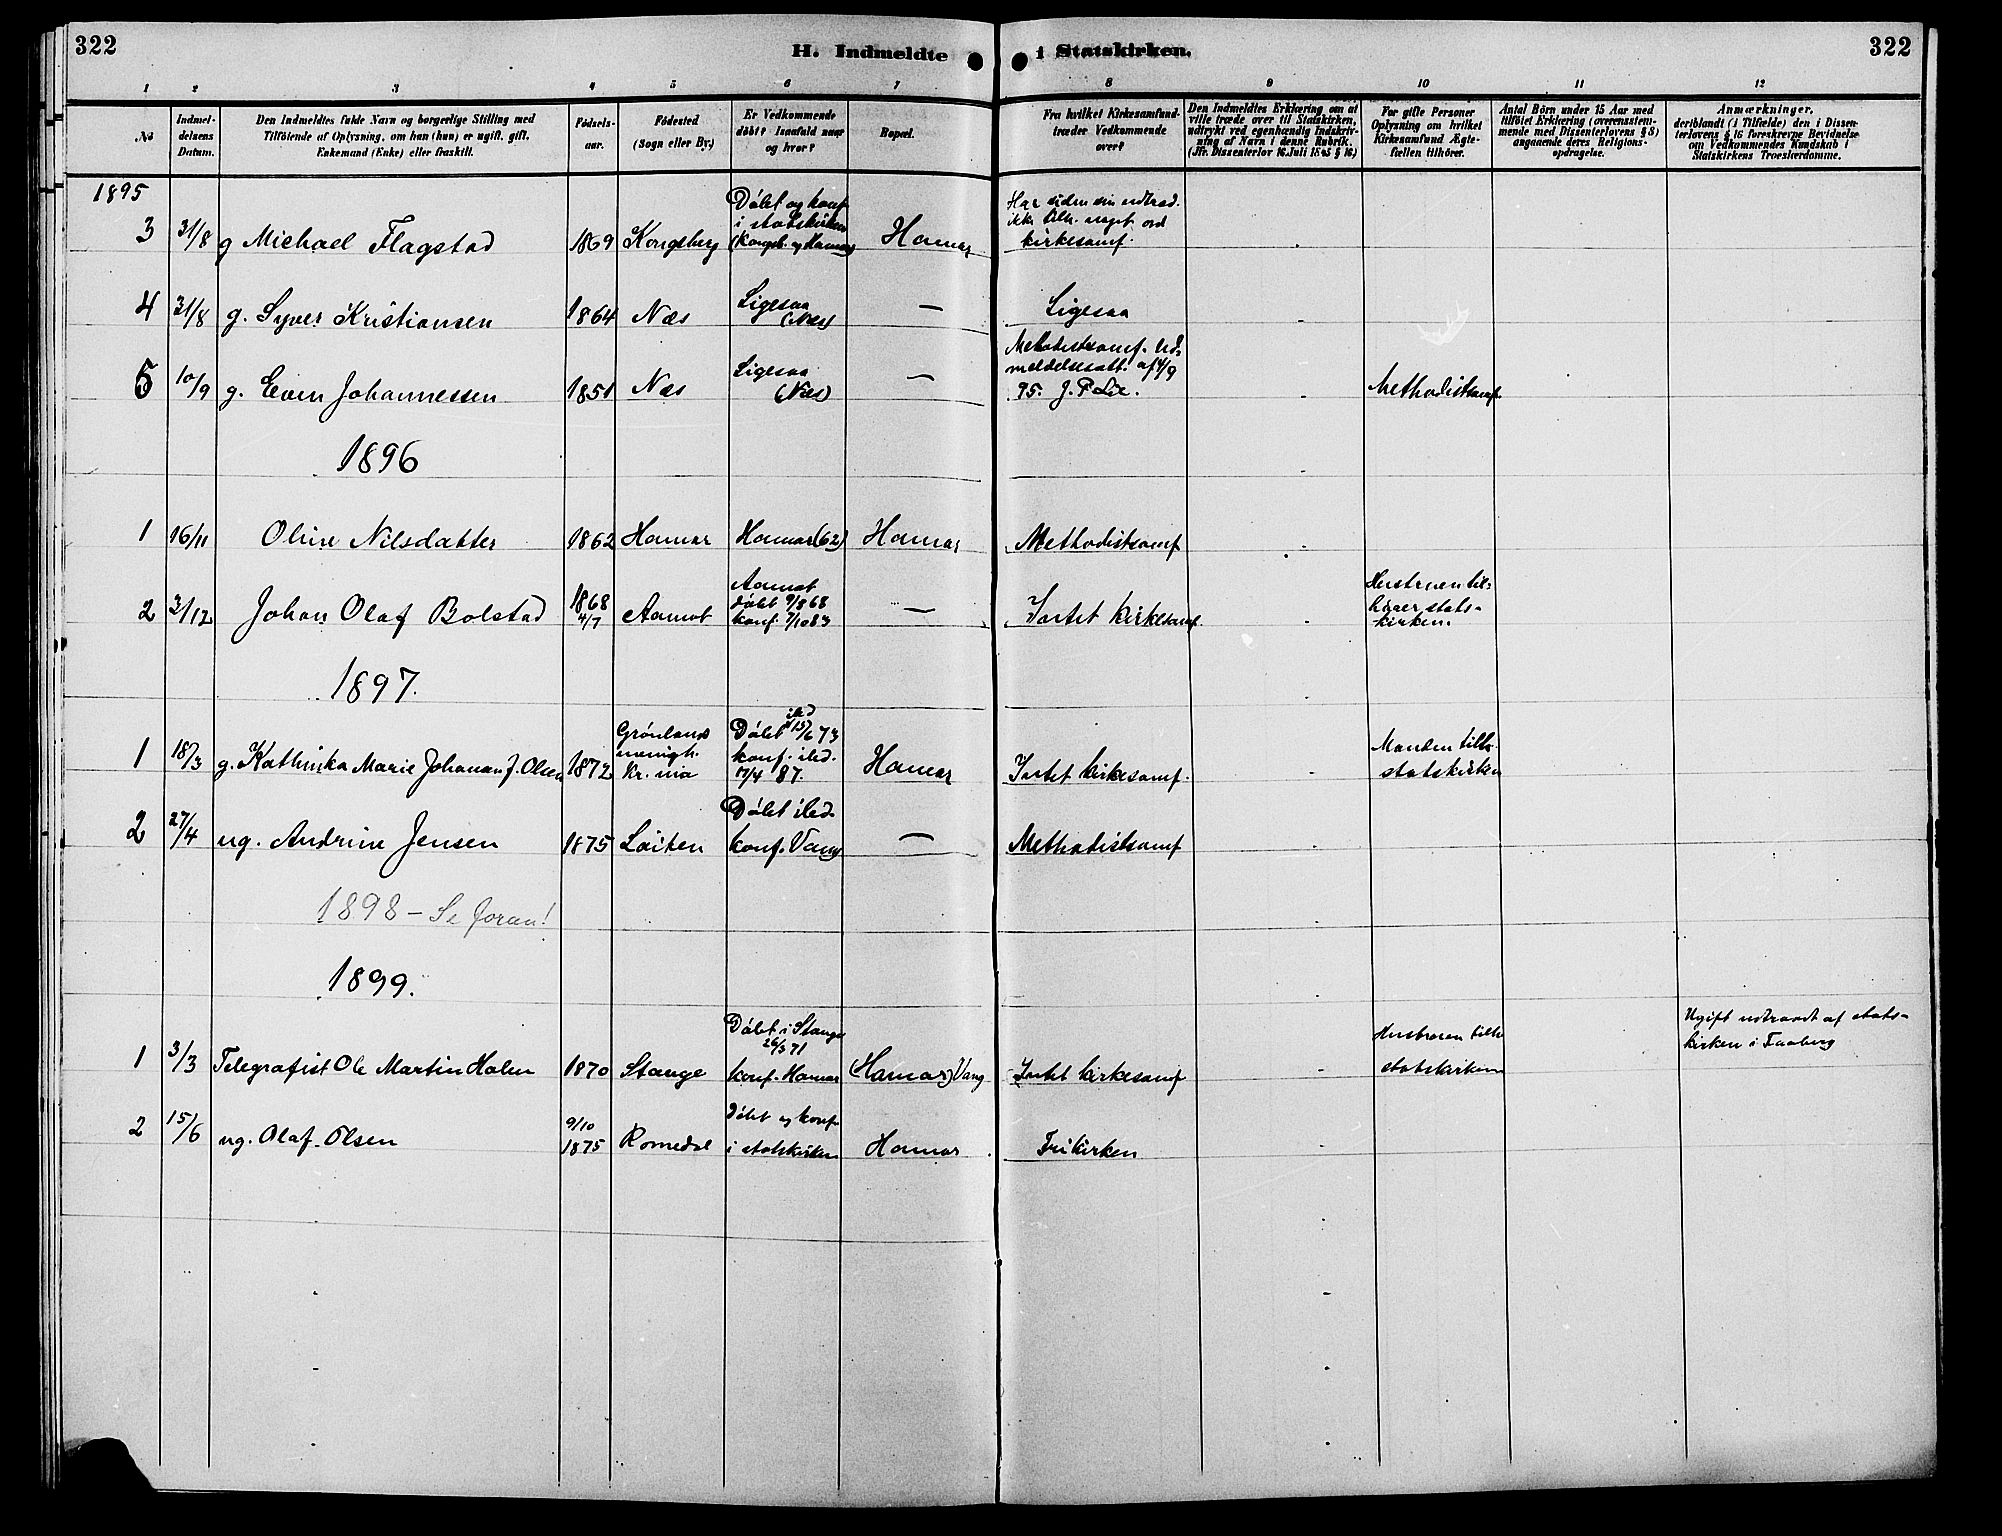 322 H. Indmeldte i Statskirken. 322
1 2 3 4 5 6 7 8 9 10 11 12
No
Indmel-
delsens
Datum.
Den Indmeldtes fulde Navn og borgerlige Stilling med
Tilföiende af Oplysning, om han (hun) er ugift, gift,
Enkemand (Enke) eller fraskilt.
Födsels-
aar.
Födested
(Sogn eller By.)
Er Vedkommende
döbt? Isaafald naar
og hvor?
Bopæl.
Fra hvilket Kirkesamfund
træder Vedkommende
over?
Den Indmeldtes Erklæring om at
ville træde over til Statskirken,
udtrykt ved egenhændig Indskriv-
ning af Navn i denne Rubrik.
(Jfr. Dissenterlov 16 Juli 1845 § 16.)
For gifte Personer
Oplysning om hvilket
Kirkesamfund Ægte-
fællen tilhörer.
Antal Börn under 15 Aar med
tilföiet Erklæring (overensstem-
mende med Dissenterlovens § 8)
angaaende deres Religions-
opdragelse.
Anmærkninger,
deriblandt (i Tilfælde) den i Dissen-
terlovens § 16 foreskrevne Bevidnelse
om Vedkommendes Kundskab i
Statskirkens Troeslærdomme.
1895
3 31/8 g Michael Flagstad 1869 Kongsberg
Döbt og konf
i statskirken
(Kongsb. og Hamar)
Hamar
Har siden sin udtræd.
ikke tilh. noget ord
kirkesamf.
4 31/8 g. Syver Kristiansen 1864 Næs
Ligesaa
(Næs)
—
Ligesaa
5 10/9 g. Even Johannessen 1851 Næs
Ligesaa
(Næs)
—
Methodistsamf. Ud-
meldelsesatt. af 4/9
95. J. P Lie.
Methodistsamf.
1896
1 16/11 Oline Nilsdatter 1862 Hamar Hamar (62) Hamar Methodistsamf
2 3/12 Johan Olaf Bolstad
1868
4/7
Aamot
Aamot
döbt 9/8 68
konf. 7/10 83
—
Intet kirkesamf.
Hustruen til-
hører stats-
kirken.
1897.
1 18/3 g. Kathinka Marie Johanna J. Olsen 1872
Grönlands
menigh.
Kr.nia
Döbt isted 15/6 73
konf. isted.
17/4 87.
Hamar
Intet kirkesamf.
Manden tilh.
statskirken
2 27/4 ug. Andrine Jensen 1875 Löiten
Döbt isted.
konf. Vang
—
Methodistsamf
1898 – Se foran!
1899.
1 3/3 Telegrafist Ole Martin Holen 1870 Stange
Döbt i Stange
26/3 71
konf. Hamar
(Hamar) Vang
Intet kirkesamf
Hustruen tilh
statskirken
Ugift udtraadt af stats-
kirken i Faaberg
2 15/6 ug. Olaf Olsen
9/10
1875
Romedal
Döbt og konf.
i statskirken
Hamar
Frikirken